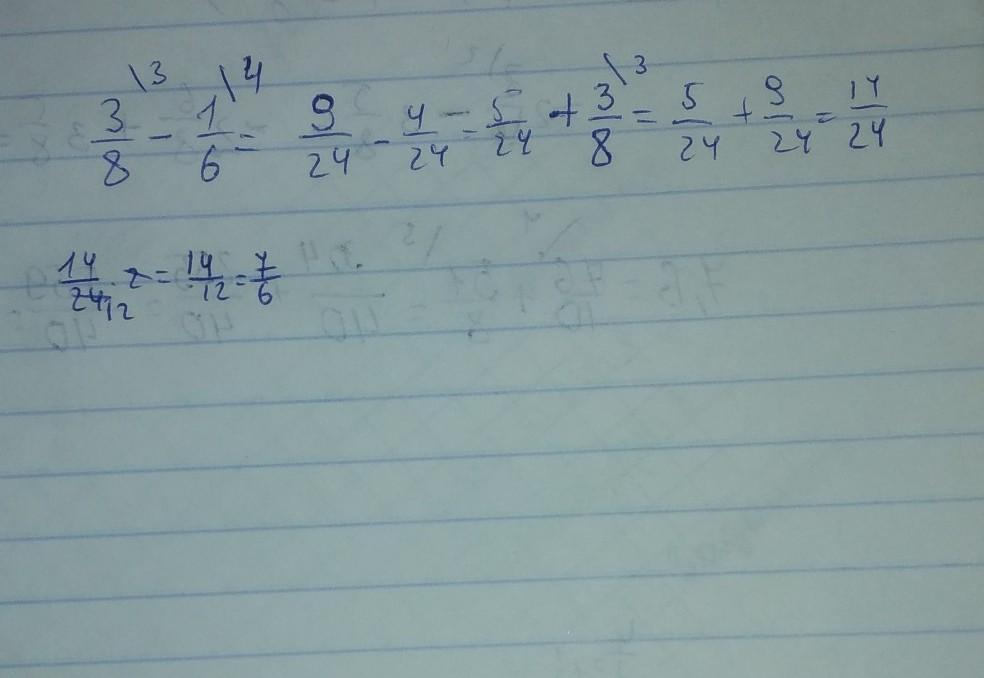 3/8 \3 - 1/6 \4 = 9/24 - 4/24 = 5/24 + 3/8 \3 = 5/24 + 9/24 = 14/24
14/24 12 · 2 = 14/12 = 7/6